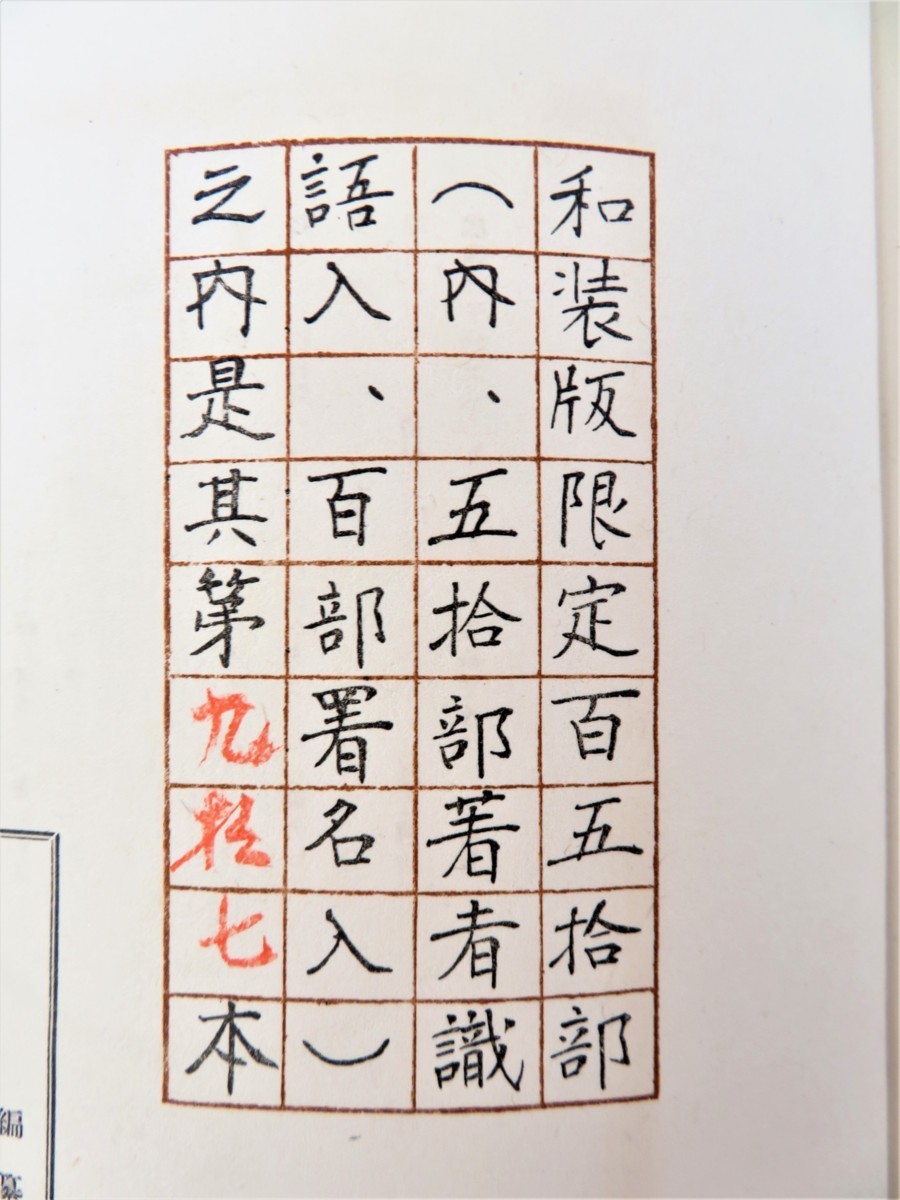 和装版限定百五拾部
（内、五拾部著者識
語入、百部署名入）
之内是其第九拾七本
編